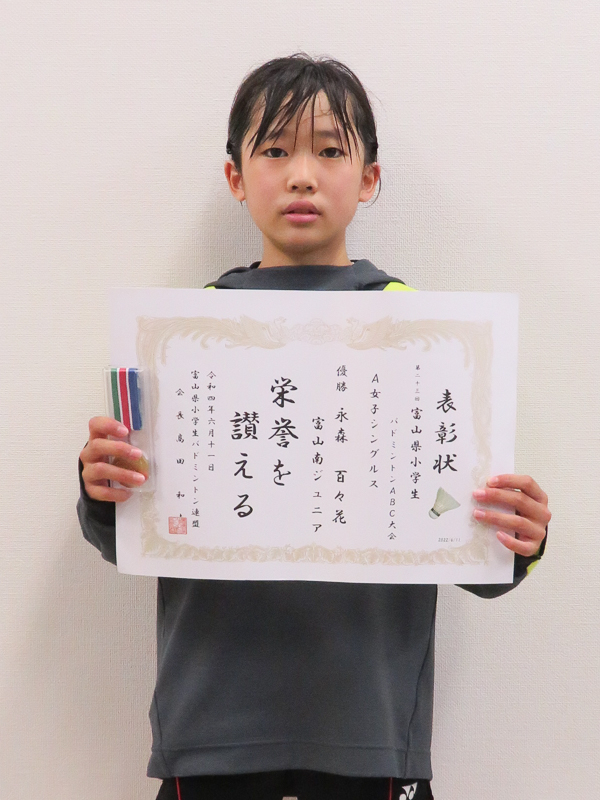 表彰状
第二十三回 富山県小学生
バドミントンABC大会
A女子シングルス
優勝 永森 百々花
富山南ジュニア
栄誉を
讃える
令和四年六月十一日
富山県小学生バドミントン連盟
会長 高田 和
YONEX